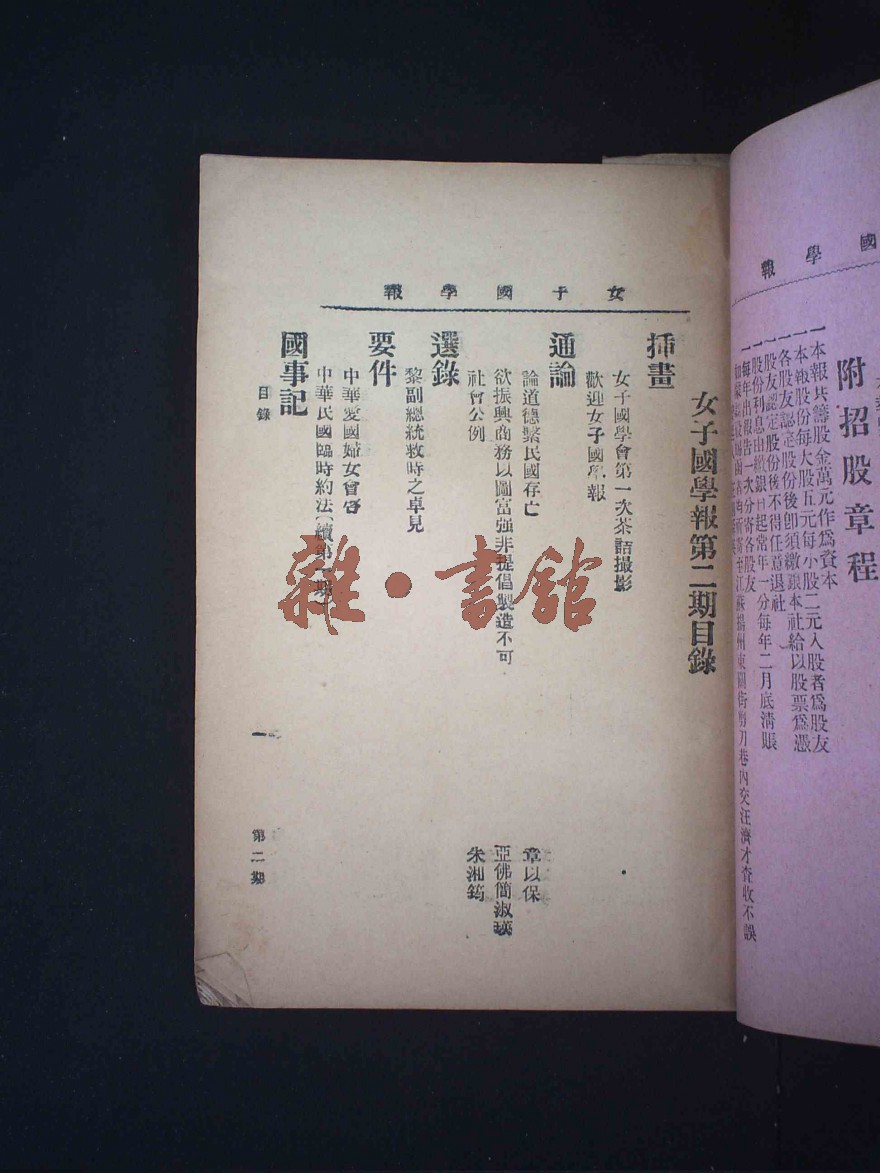 國學報
附招股章程
一本報共籌股金萬元作爲資本
一本報股份每大股五元每小股二元入股者爲股友
一各股友認定股份後卽須繳銀本社給以股票爲憑
一股友認定股份後不得任意退社
一股份利息由繳銀日起常年一分每年二月底清賬
一每年出報告一次分寄各股友
江蘇揚州東關街剪刀巷內交汪濟才查收不誤
女子國學報
女子國學報第二期目錄
揷畫
女子國學會第一次茶話撮影
歡迎女子國學報
通論
論道德繫民國存亡 章以保
欲振興商務以圖富强非提倡製造不可 亞佛簡淑瑛
社會公例 朱湘筠
選錄
黎副總統救時之卓見
要件
中華愛國婦女會
中華民國臨時約法(續第一期)
國事記
目錄
一
第二期
雜·書館